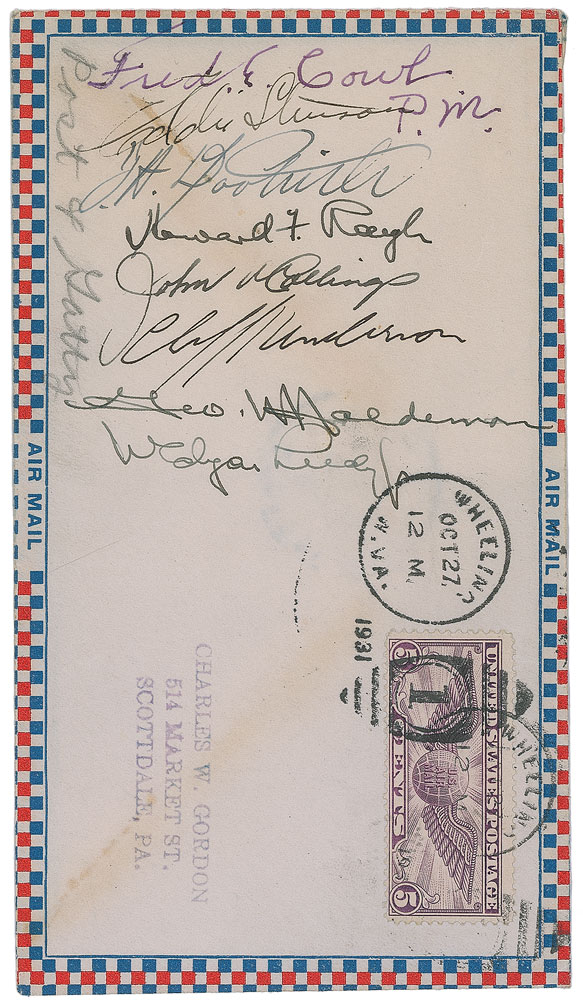 Fred E. Cowl
P.M.
Eddie Stinson
J.H. Doolittle
Howard F.
John
Cliff Henderson
Geo. Haldeman
W Edgar
Post & Gatty
AIR MAIL
AIR MAIL
WHEELING
OCT 27,
12 M.
W. VA.
1931
UNITED STATES POSTAGE
U.S.
AIR
MAIL
5 CENTS 5
1
WHEELING
CHARLES W. GORDON
514 MARKET ST.
SCOTTDALE, PA.